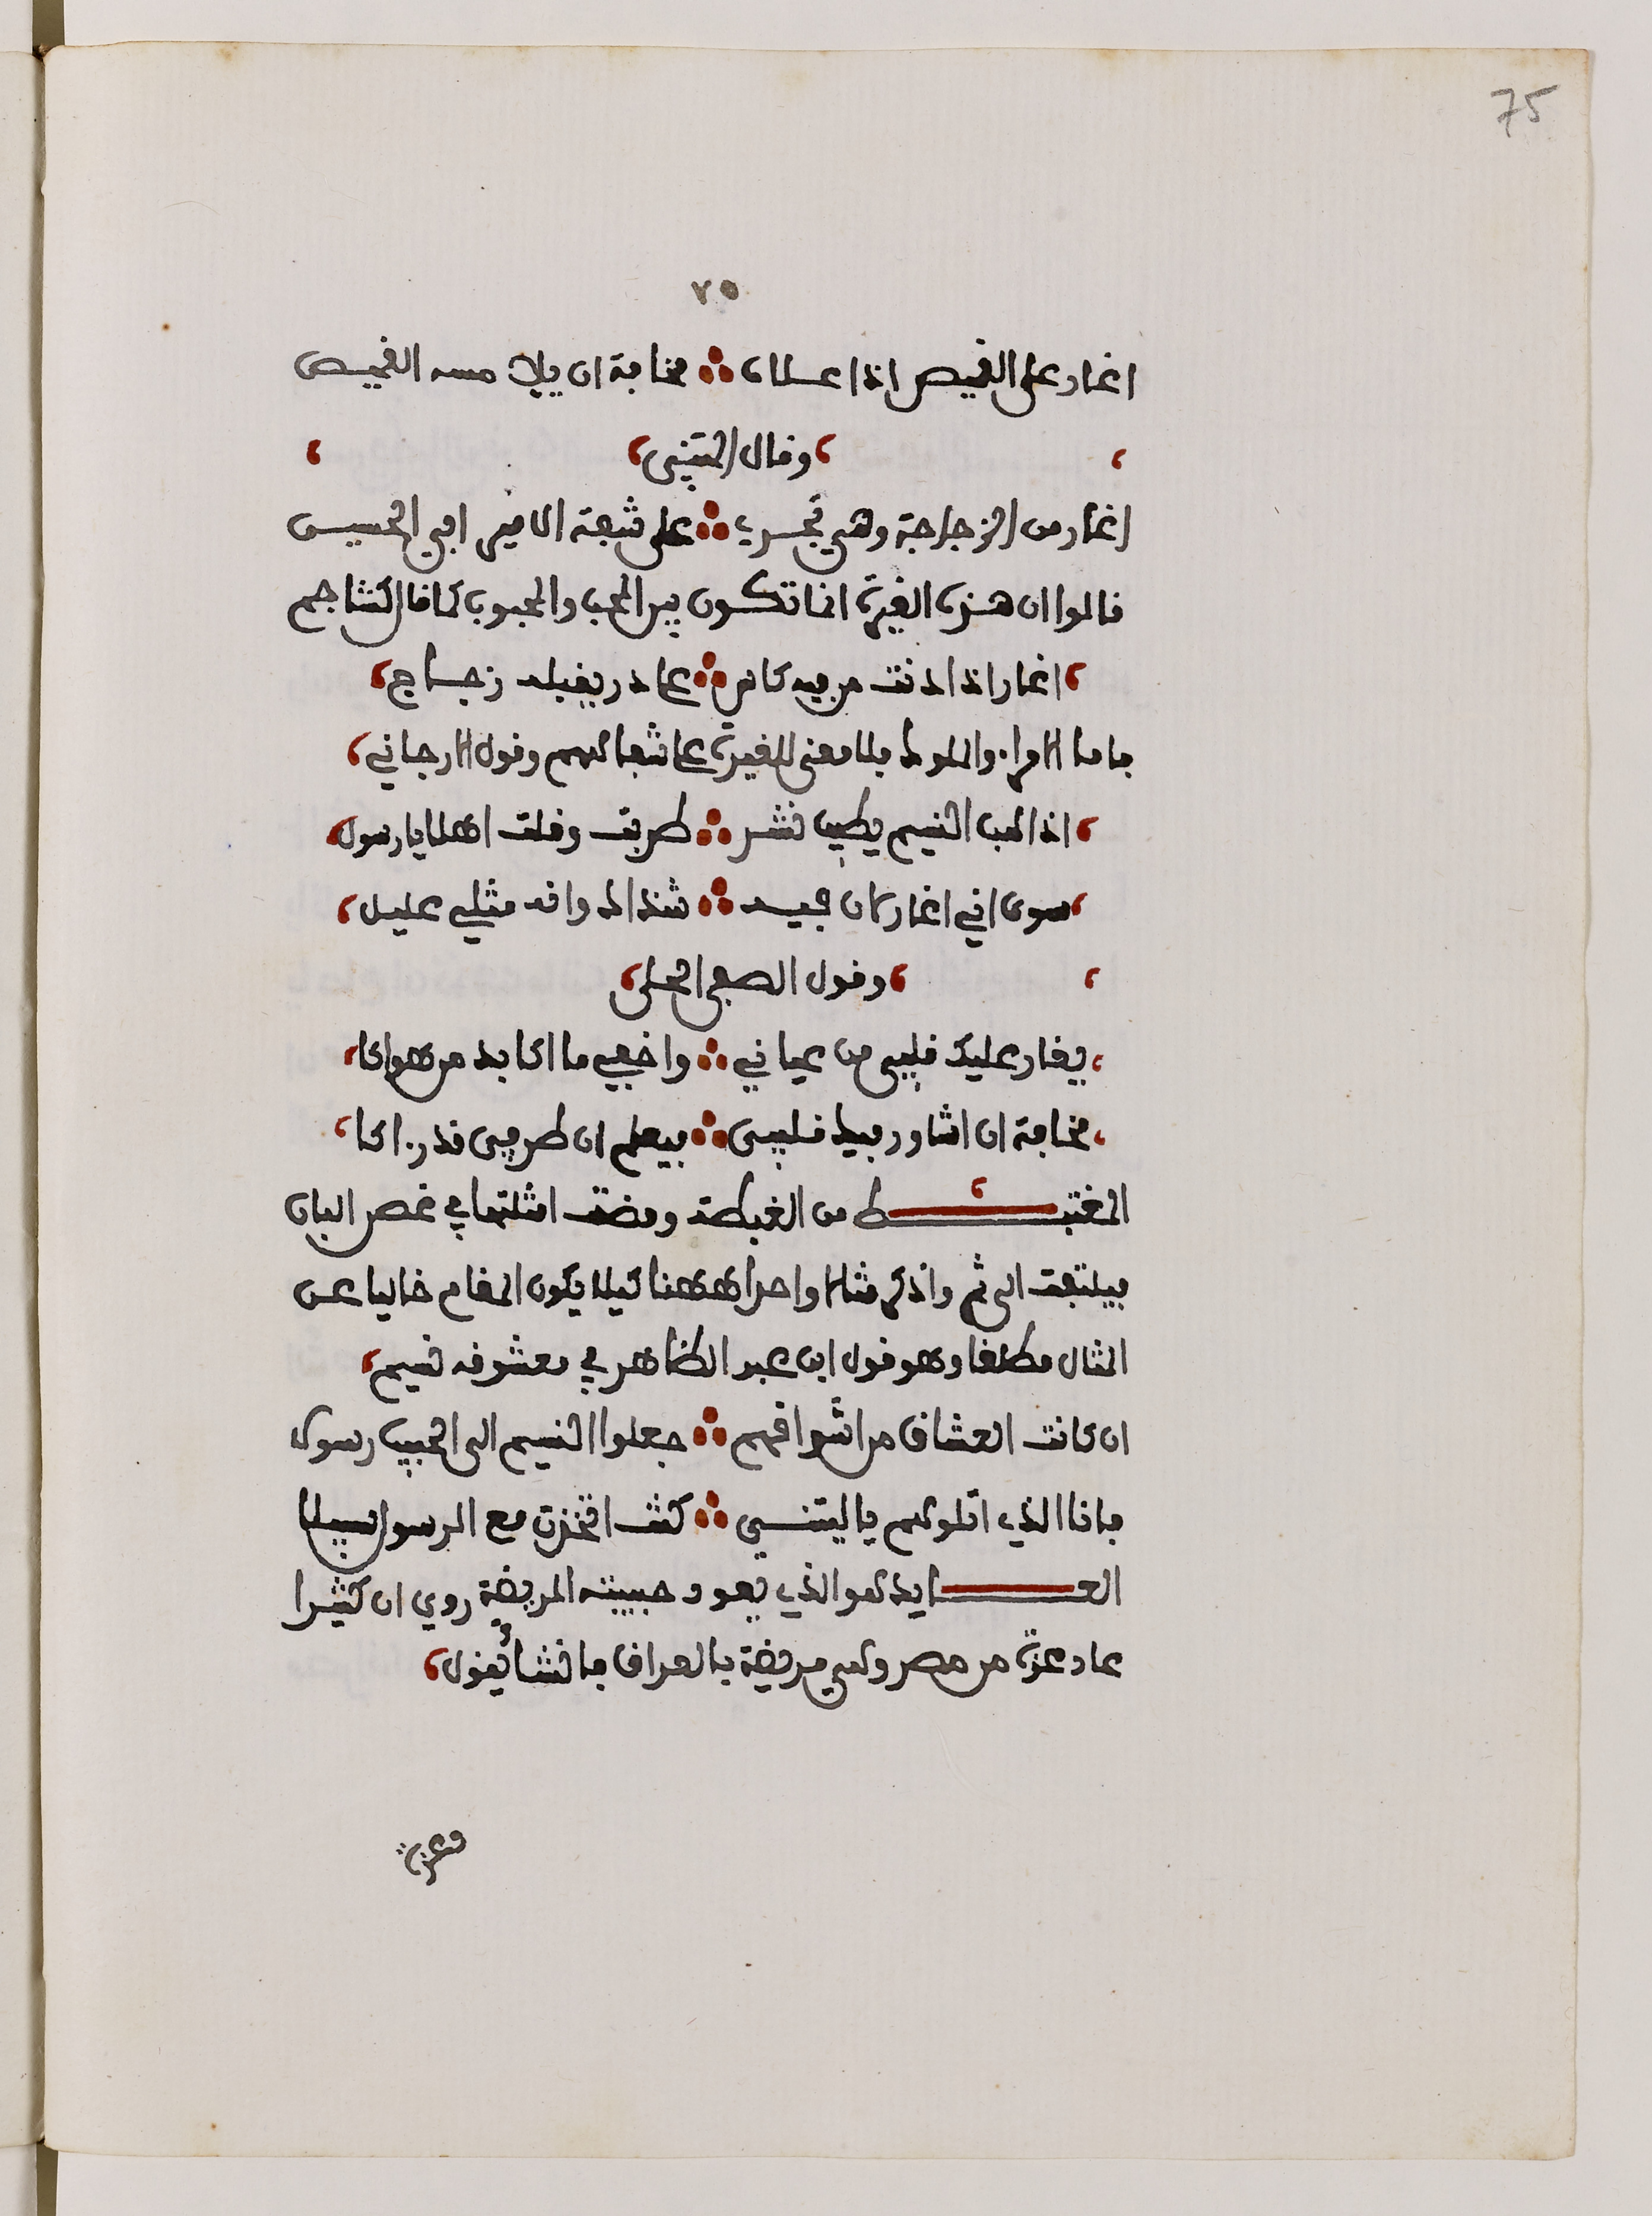 75
٧٥
اغار على القميص اذا علاه ∴ مخافة ان يلامسه القميص
، وقال المتنبي ،
اغار من الزجاجة وهي تجري ∴ على شفة الامير ابي الحسين
قالوا ان هذه الغيرة انما تكون بين المحب والمحبوب كما قال كشاجم
، اغار اذا دنت من فيه كاس ∴ على در يقبله زجاج ،
فاما الامراء والملوك فلا معنى للغيرة على شفاههم وقول الارجاني ،
، اذا هب النسيم بطيب نشر ∴ طربت وقلت اهلا يا رسول ،
، سوى اني اغار لان فيه ∴ شذاك وانه مثلي عليل ،
، وقول الصفي الحلي ،
، يغار عليك قلبي من عياني ∴ واخفي ما اكابد من هواكا ،
، مخافة ان اشاور فيك قلبي ∴ فيعلم ان طرفي قد راكا ،
المغتبط من الغبطة ومضت امثلتها في غصن البان
فيلتفت الى ثم واذكر مثالا واحدا ههنا كيلا يكون المقام خاليا عن
المثال مطلقا وهو قول ابن عبد الظاهر في معشوقه نسيم ،
ان كانت العشاق من اشواقهم ∴ جعلوا النسيم الى الحبيب رسولا
فانا الذي اتلو لهم يا ليتني ∴ كنت اتخذت مع الرسول سبيلا
العايد هو الذي يعود حبيبته المريضة روي ان كثيرا
عاد عزة من مصر وهي مريضة بالعراق فانشأ يقول ،
وعزة